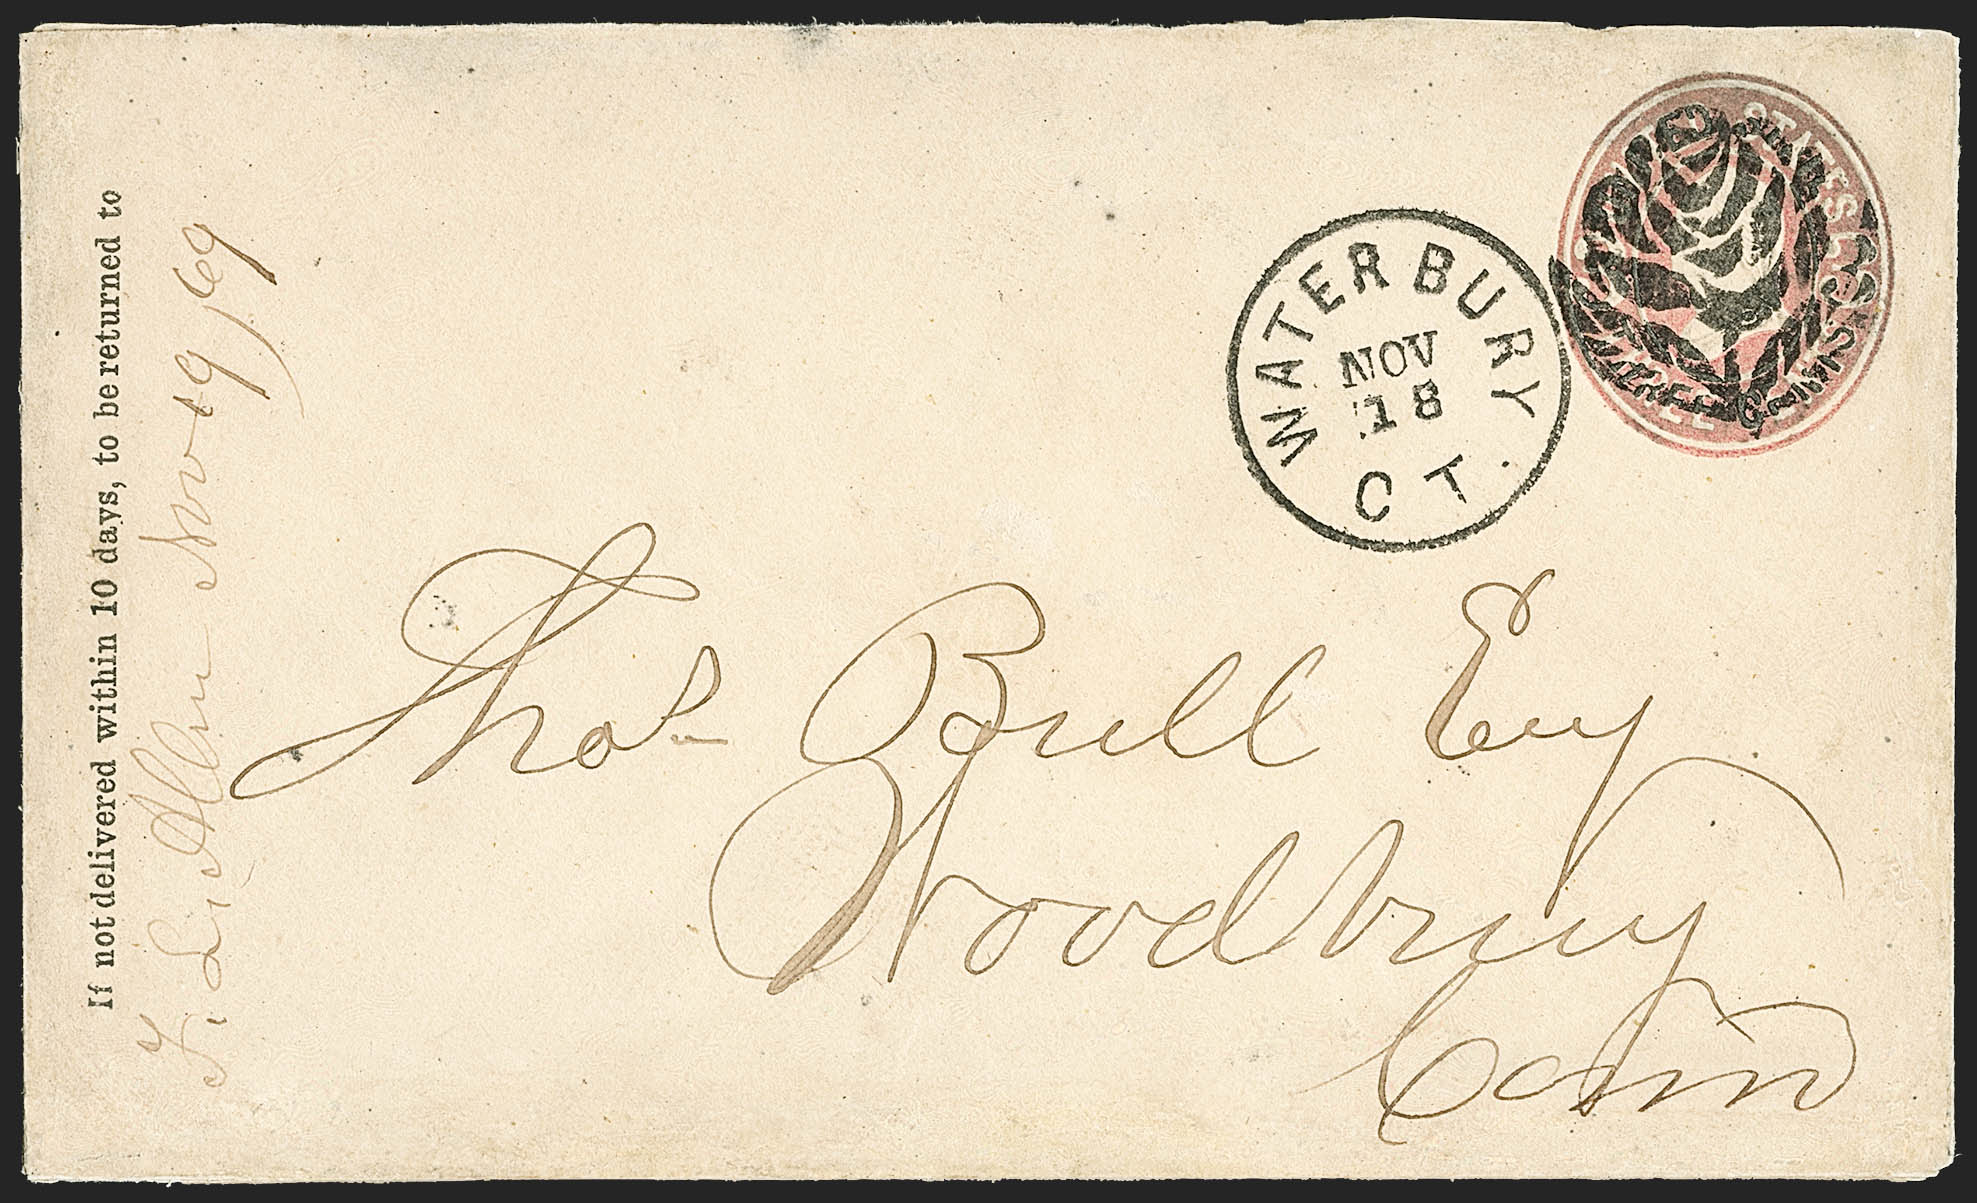 If not delivered within 10 days, to be returned to
Nov 19/69
WATERBURY
NOV
18
CT.
STATES
THREE CENTS
Thos Bull Esq
Woodbury
Conn